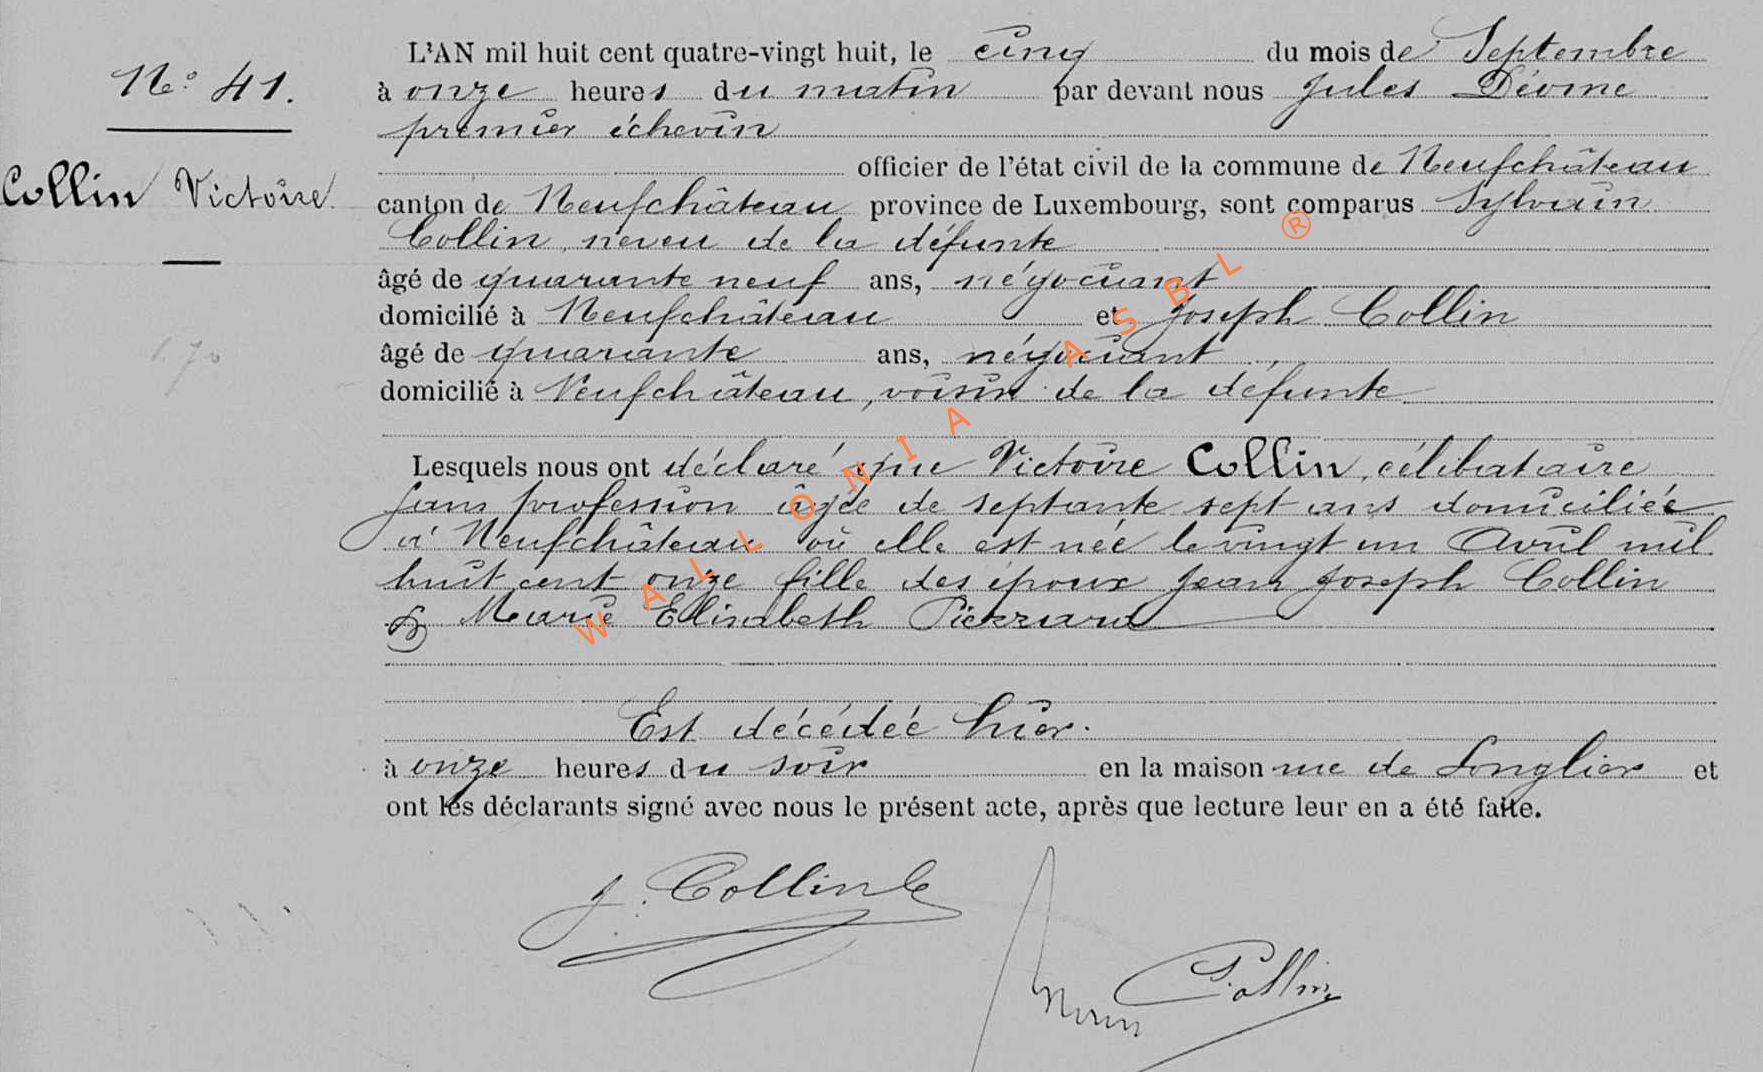 N° 41.
Collin Victoire.
L'AN mil huit cent quatre-vingt huit, le cinq du mois de Septembre
à onze heures du matin par devant nous Jules
premier échevin
officier de l'état civil de la commune de Neufchâteau
canton de Neufchâteau province de Luxembourg, sont comparus Sylvain
Collin, neveu de la défunte
âgé de quarante neuf ans, négociant
domicilié à Neufchâteau et Joseph Collin
âgé de quarante ans, négociant,
domicilié à Neufchâteau, voisin de la défunte
Lesquels nous ont déclaré que Victoire Collin, célibataire
sans profession âgée de septante sept ans domiciliée
à Neufchâteau où elle est née le vingt un Avril mil
huit cent onze fille des époux Jean Joseph Collin
& Marie Elisabeth Pierrard
Est décédée hier.
à onze heures du soir en la maison rue de Longlier et
ont les déclarants signé avec nous le présent acte, après que lecture leur en a été faite.
J. Collin
Collin
WALLONIA ASBL ®